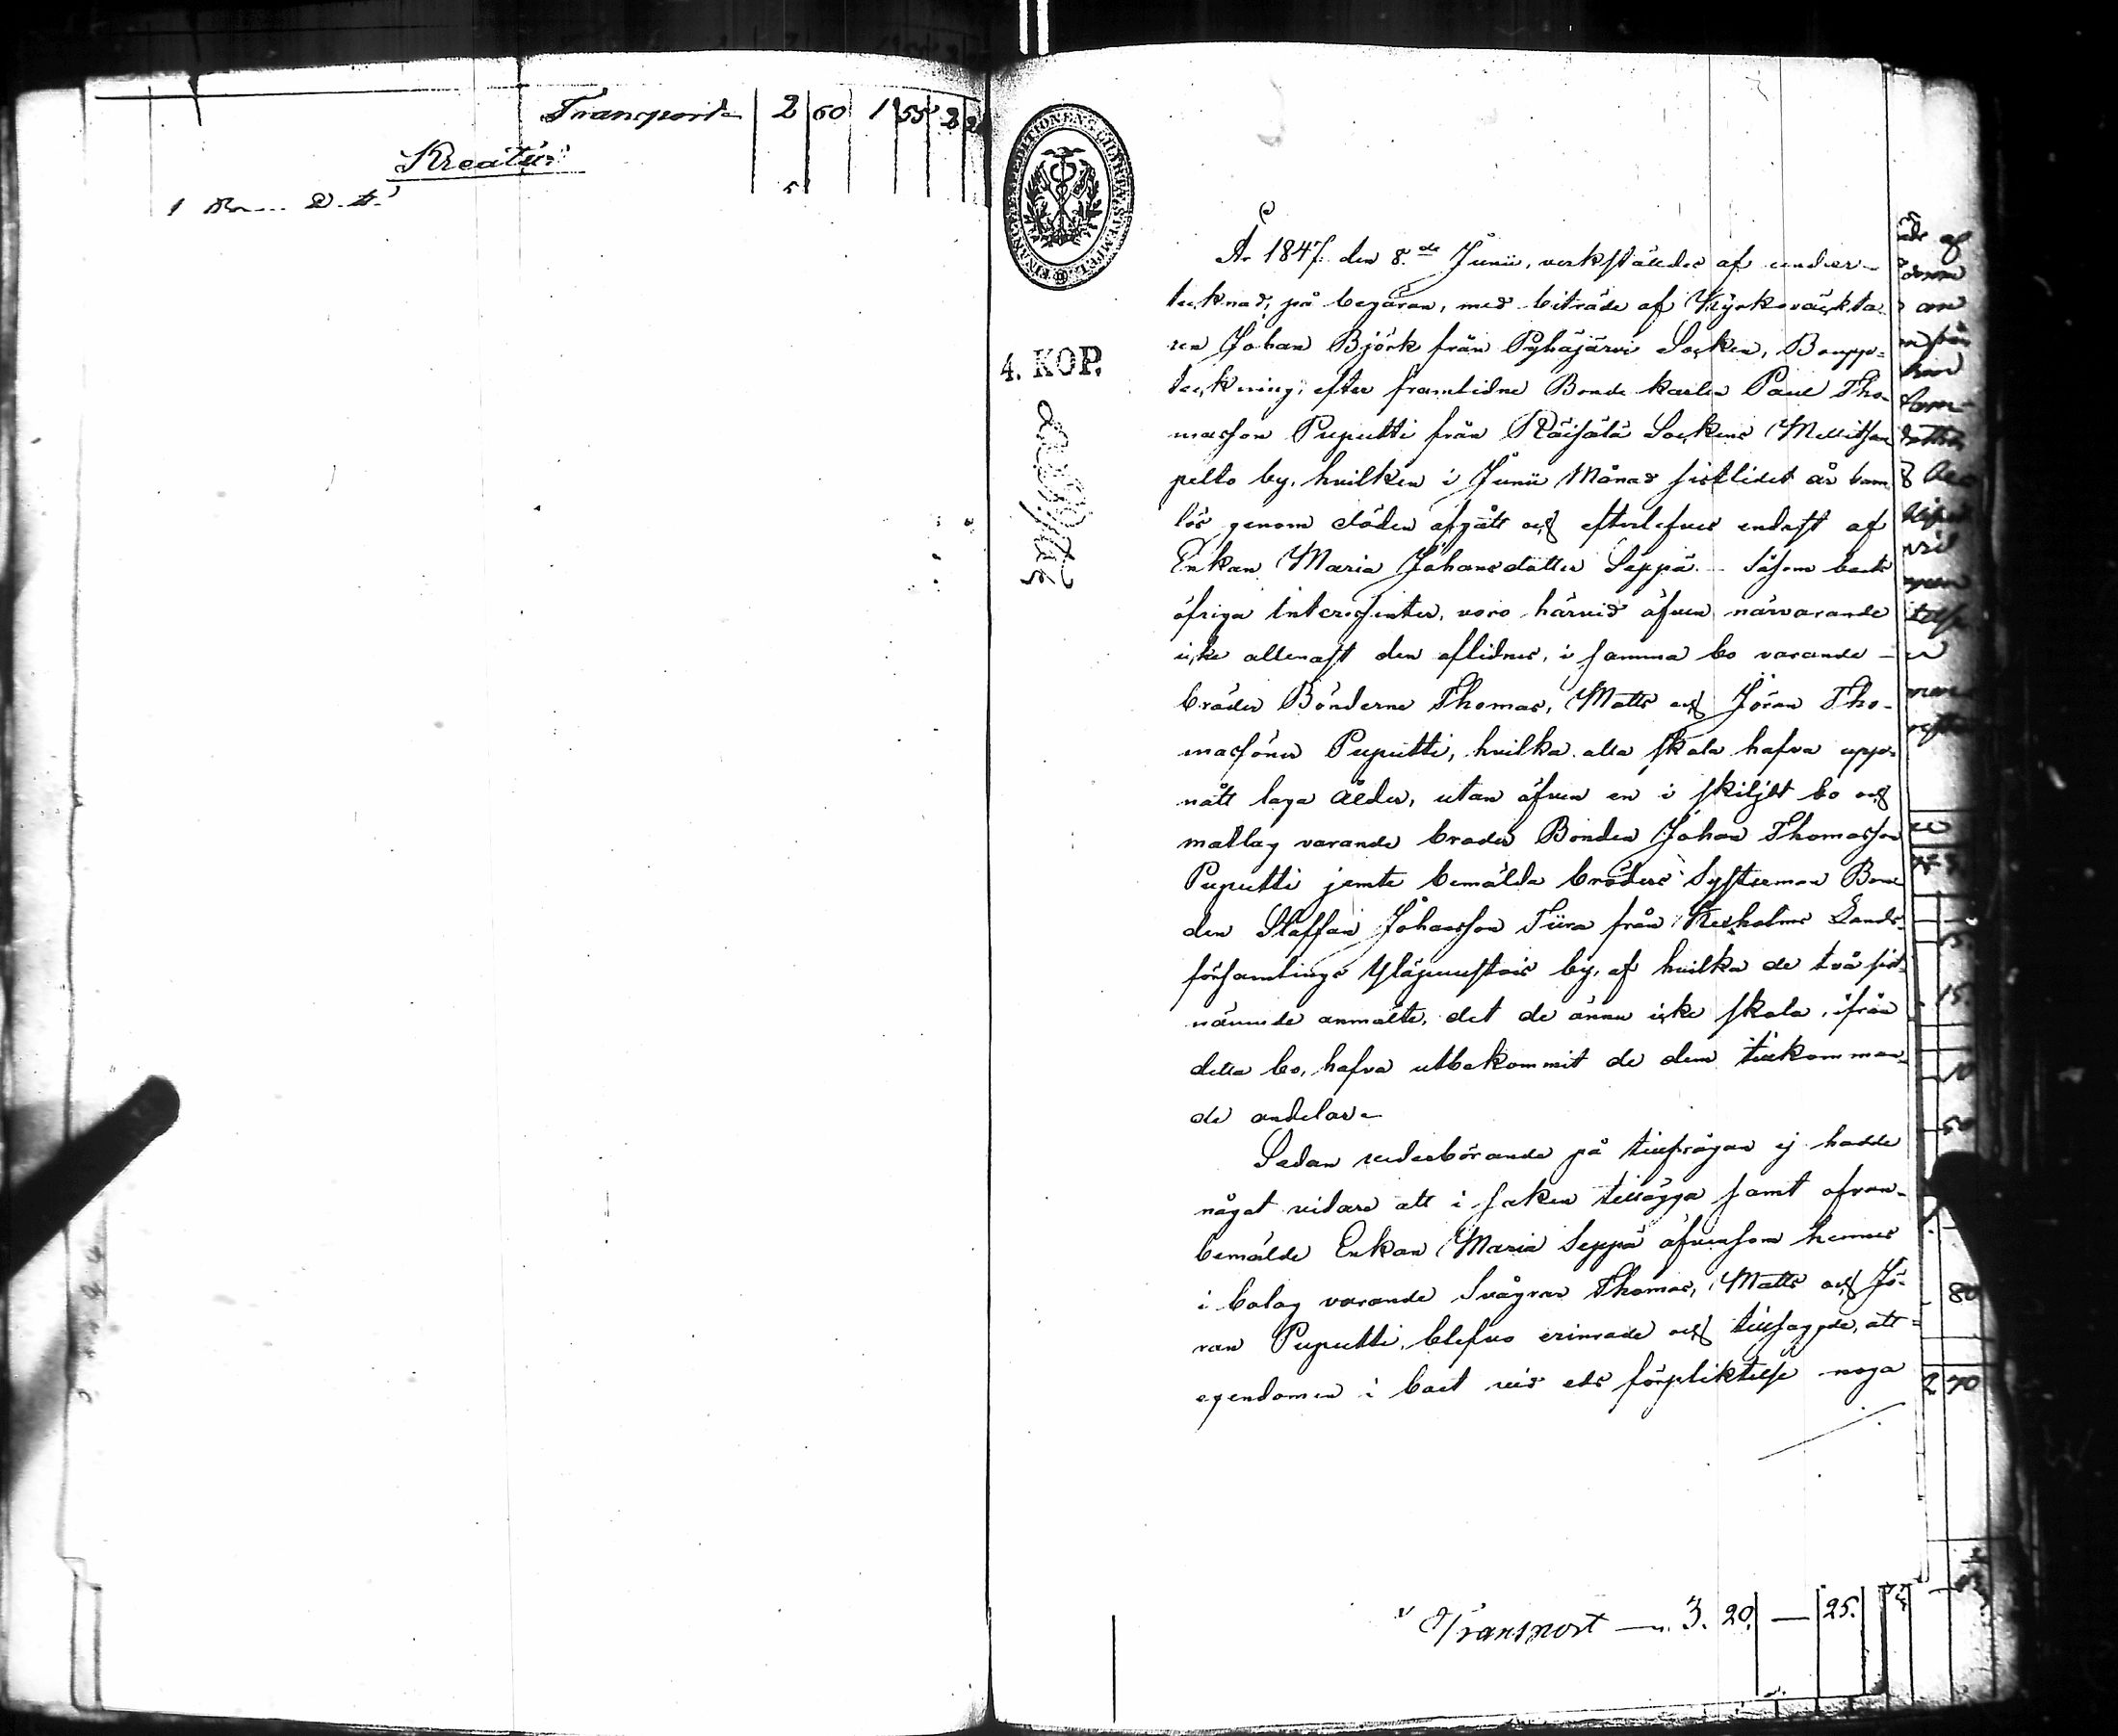 Transport 2 60 1 55 2
Kreatur
1
FINANCE EXPEDITIONENS CHARTÆ STEMPEL
4. KOP.
År 1847 den 8.de Junii, verkställdes af under-
tecknad, på begäran, med biträde af Kyrkoväckta-
ren Johan Björk från Pyhäjärvi Socken, Boupp-
teckning, efter framlidne Bonde karlen Paul Tho-
masson Puputti från Räisälä Sockens
pelto by, hvilken i Junii Månad sistlidet år barn-
lös genom döden afgått och efterlefves endast af
Enkan Maria Johansdotter Seppä. Såsom
öfriga interessenter, voro härvid äfven närvarande
icke allenast den aflidnes, i samma bo varande -
bröder Bönderne Thomas, Matts och Jöran Tho-
massöner Puputti, hvilka alla skola hafva upp-
nått laga ålder, utan äfven en i skiljdt bo och
matlag varande broder Bonden Johan Thomasson
Puputti jemte bemälda bröders Systerman Bon-
den Staffan Johansson Tiira från Kexholms Lands-
församlings by, af hvilka de två sist-
nämnde anmälte, det de ännu icke skola, ifrån
detta bo, hafva utbekommit de dem tillkomman-
de andelar.
Sedan vederbörande på tillfrågan ej hadde
något vidare att i saken tillägga samt ofvan-
bemälde Enkan Maria Seppä äfvensom hennes
i bolag varande Svågrar Thomas, Matts och Jö-
ran Puputti, blefvo erinrade och tillsagde, att
egendomen i boet vid eds förpliktelse noga
Transport 3. 20. — 25.
af
15.
10
50
80
2 70